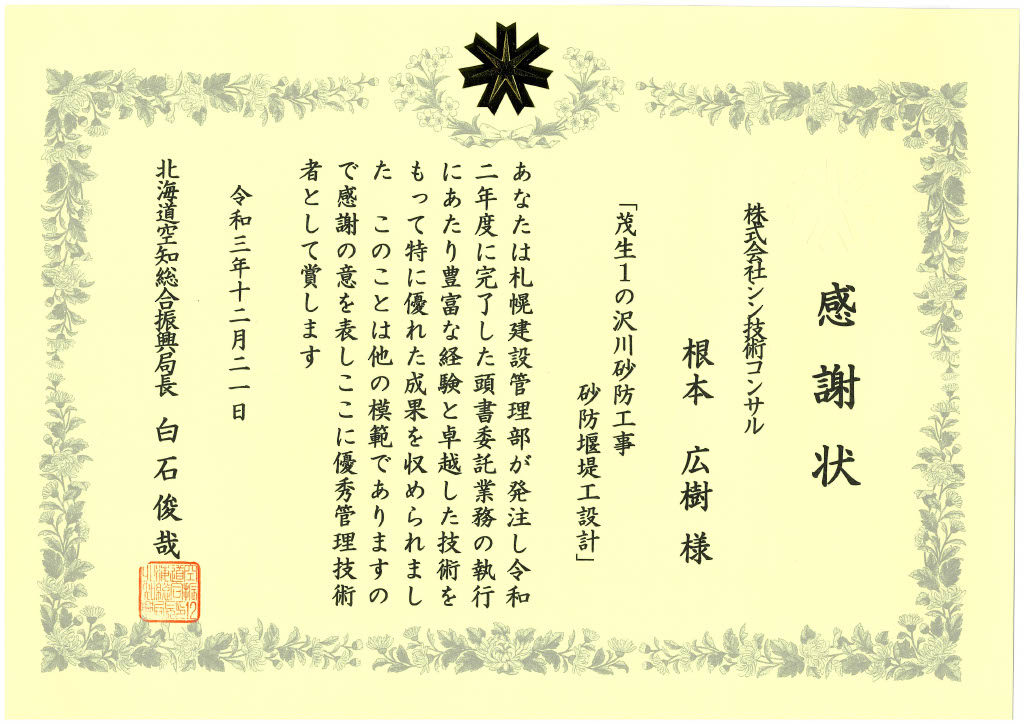 感謝状
株式会社シン技術コンサル
根本 広樹 様
「茂生1の沢川砂防工事
砂防堰堤工設計」
あなたは札幌建設管理部が発注し令和
二年度に完了した頭書委託業務の執行
にあたり豊富な経験と卓越した技術を
もって特に優れた成果を収められまし
た このことは他の模範でありますの
で感謝の意を表しここに優秀管理技術
者として賞します
令和三年十二月二一日
北海道空知総合振興局長 白石俊哉